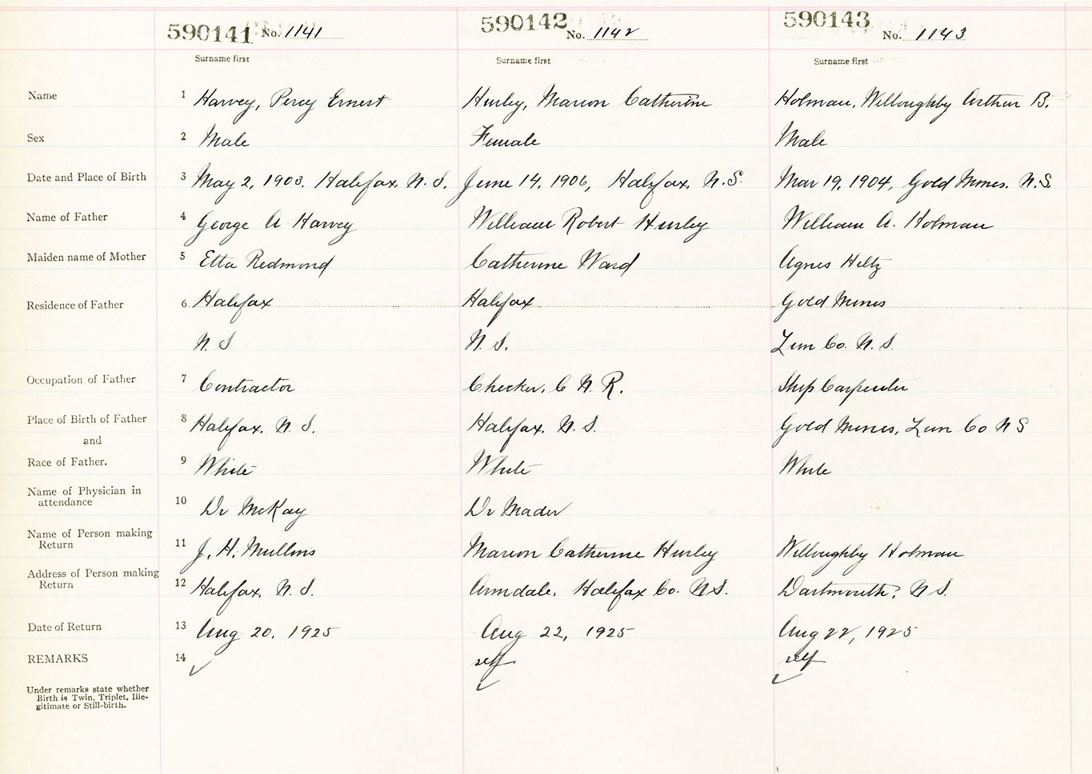 590141 No. 1141 590142 No. 1142 590143 No. 1143
Surname first Surname first Surname first
Name 1 Harvey, Percy Ernest Hurley, Marion Catherine Holman, Willoughby Arthur B.
Sex 2 Male Female Male
Date and Place of Birth 3 May 2, 1903, Halifax, N. S. June 14, 1906, Halifax, N.S. Mar 19, 1904, Gold Mines, N.S
Name of Father 4 George A Harvey William Robert Hurley William A. Holman
Maiden name of Mother 5 Etta Redmond Catherine Ward Agnes Hiltz
Residence of Father 6 Halifax Halifax Gold Mines
N. S N. S. Lun Co. N. S.
Occupation of Father 7 Contractor Checker, C N. R. Ship Carpenter
Place of Birth of Father 8 Halifax. N. S. Halifax. N. S. Gold Mines, Lun Co N S
and
Race of Father. 9 White White White
Name of Physician in
attendance 10 Dr McKay Dr Mader
Name of Person making
Return 11 J. H. Mullins Marion Catherine Hurley Willoughby Holman
Address of Person making
Return 12 Halifax, N. S. Armdale, Halifax Co. N.S. Dartmouth, N S.
Date of Return 13 Aug 20, 1925 Aug 22, 1925 Aug 22, 1925
REMARKS 14 self self
Under remarks state whether
Birth is Twin, Triplet, Ille-
gitimate or Still-birth.